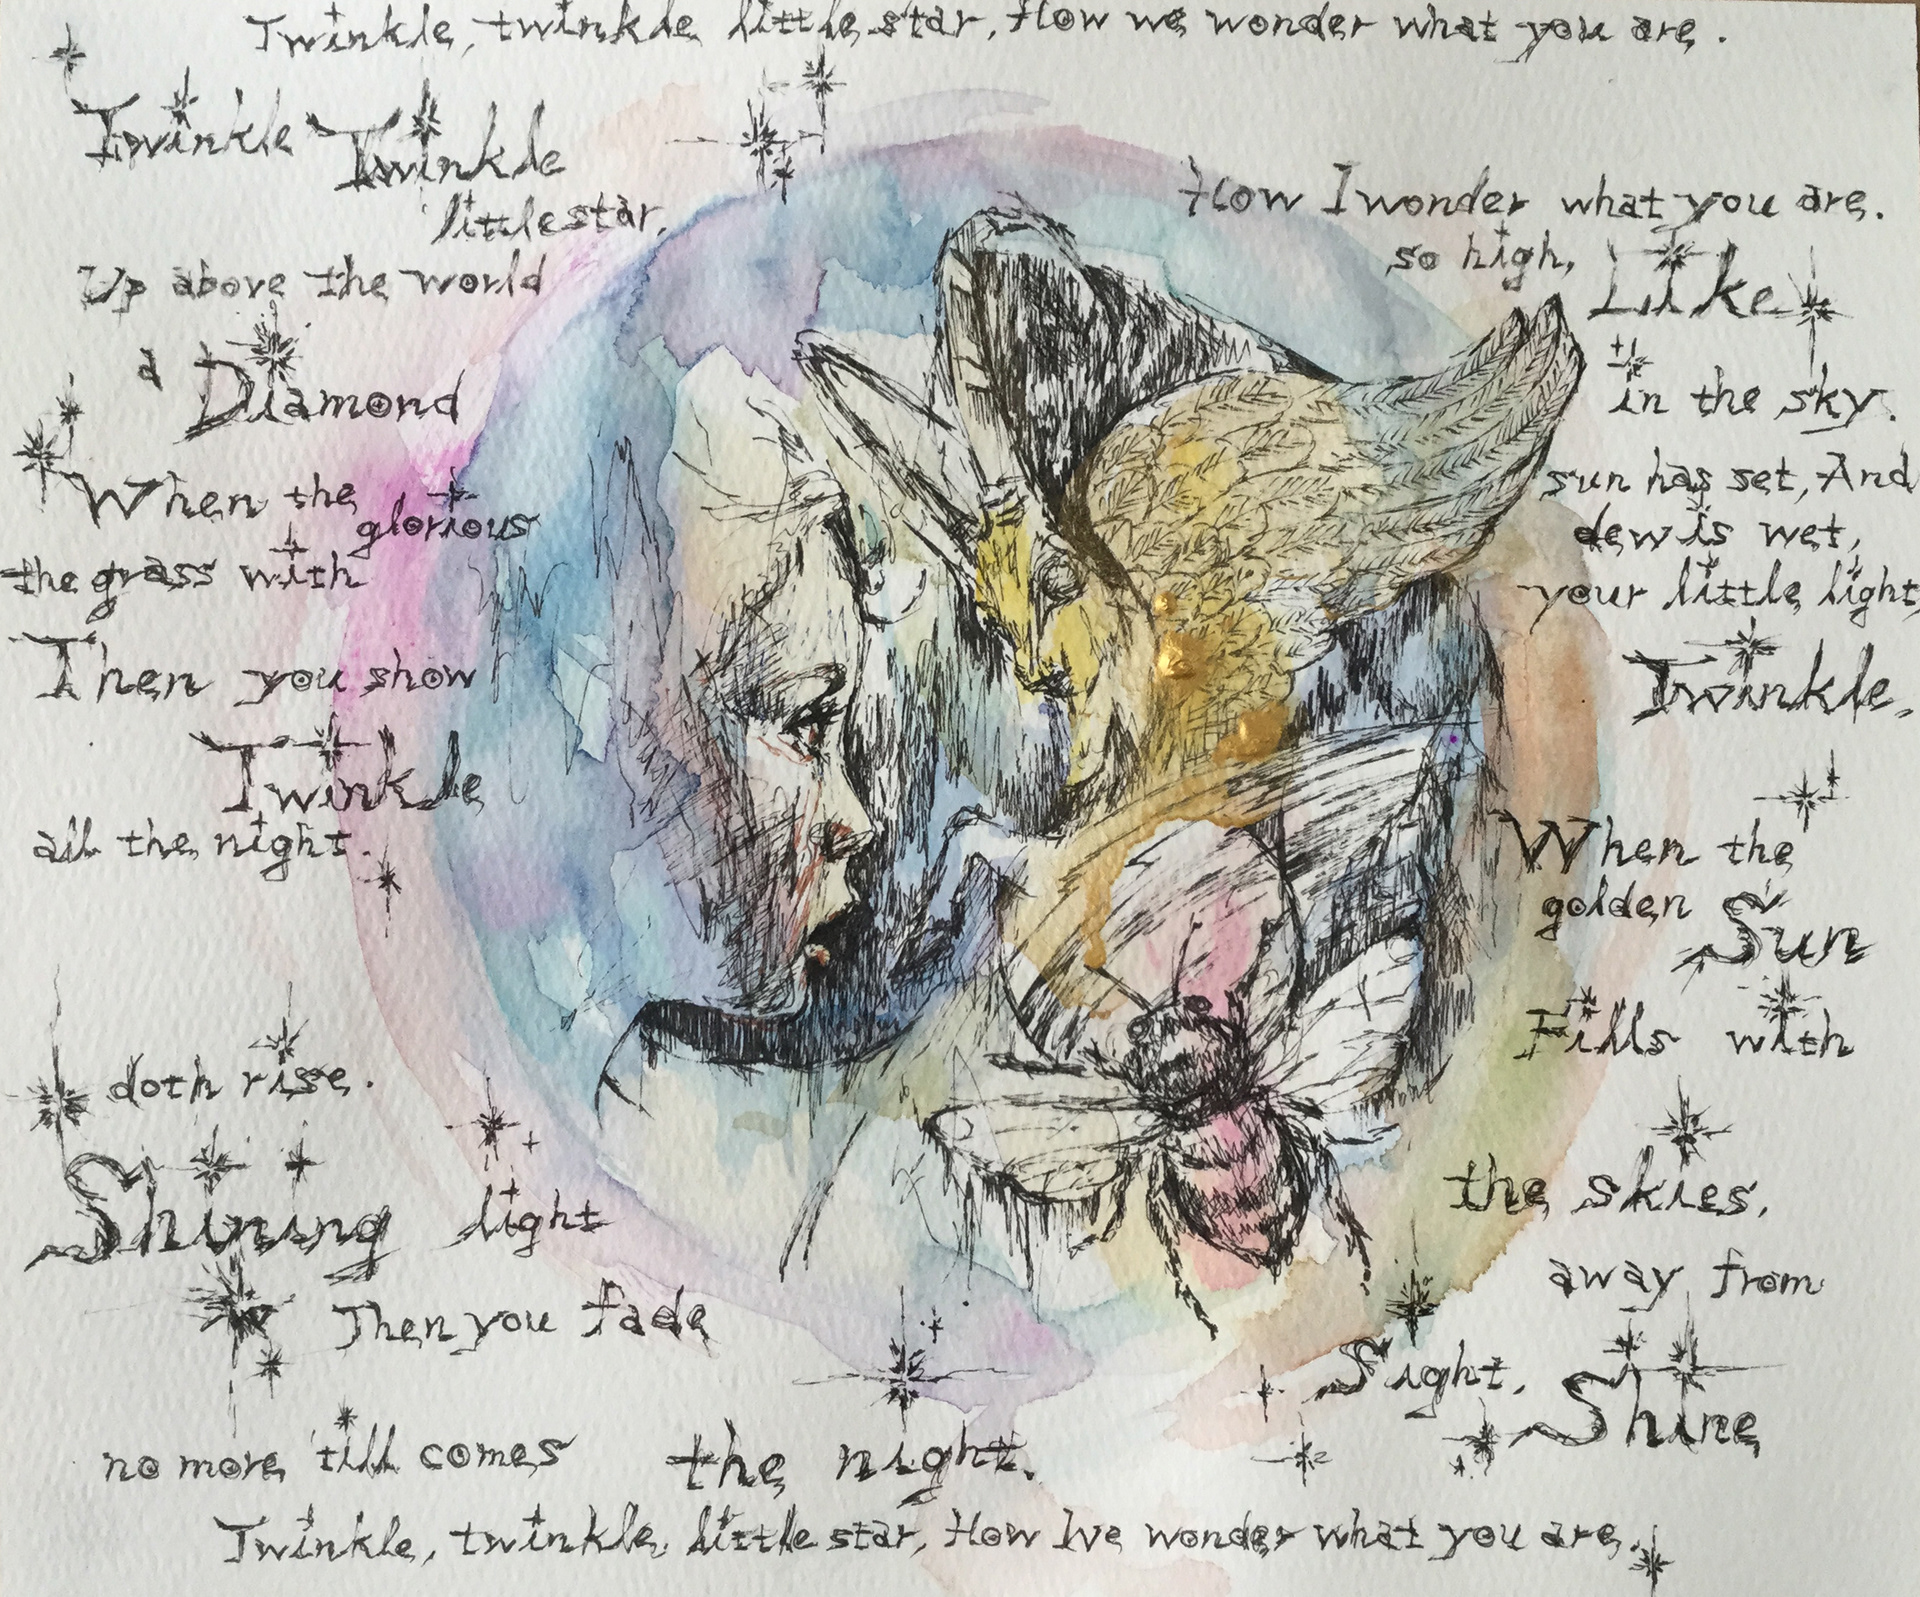 Twinkle, twinkle little star, How we wonder what you are.
Twinkle Twinkle
little star,
How I wonder what you are.
Up above the world
so high, Like
a Diamond
in the sky.
When the glorious
sun has set, And
the grass with
dew is wet,
Then you show
your little light,
Twinkle,
Twinkle
all the night.
When the
golden Sun
doth rise.
Fills with
Shining light
the skies,
Then you fade
away from
Sight, Shine
no more 'till comes the night.
Twinkle, twinkle little star, How Ive wonder what you are.